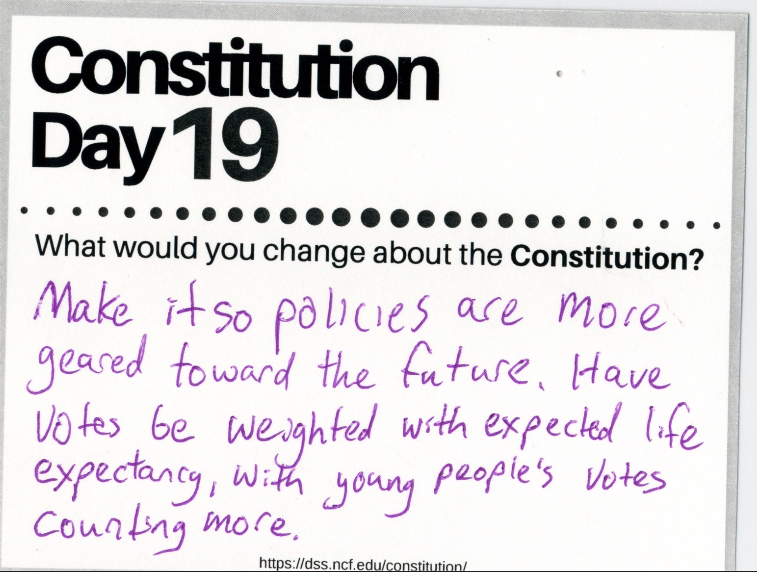 Constitution
Day 19
What would you change about the Constitution?
Make it so policies are more
geared toward the future. Have
votes be weighted with expected life
expectancy, with young people's votes
counting more.
https://dss.ncf.edu/constitution/